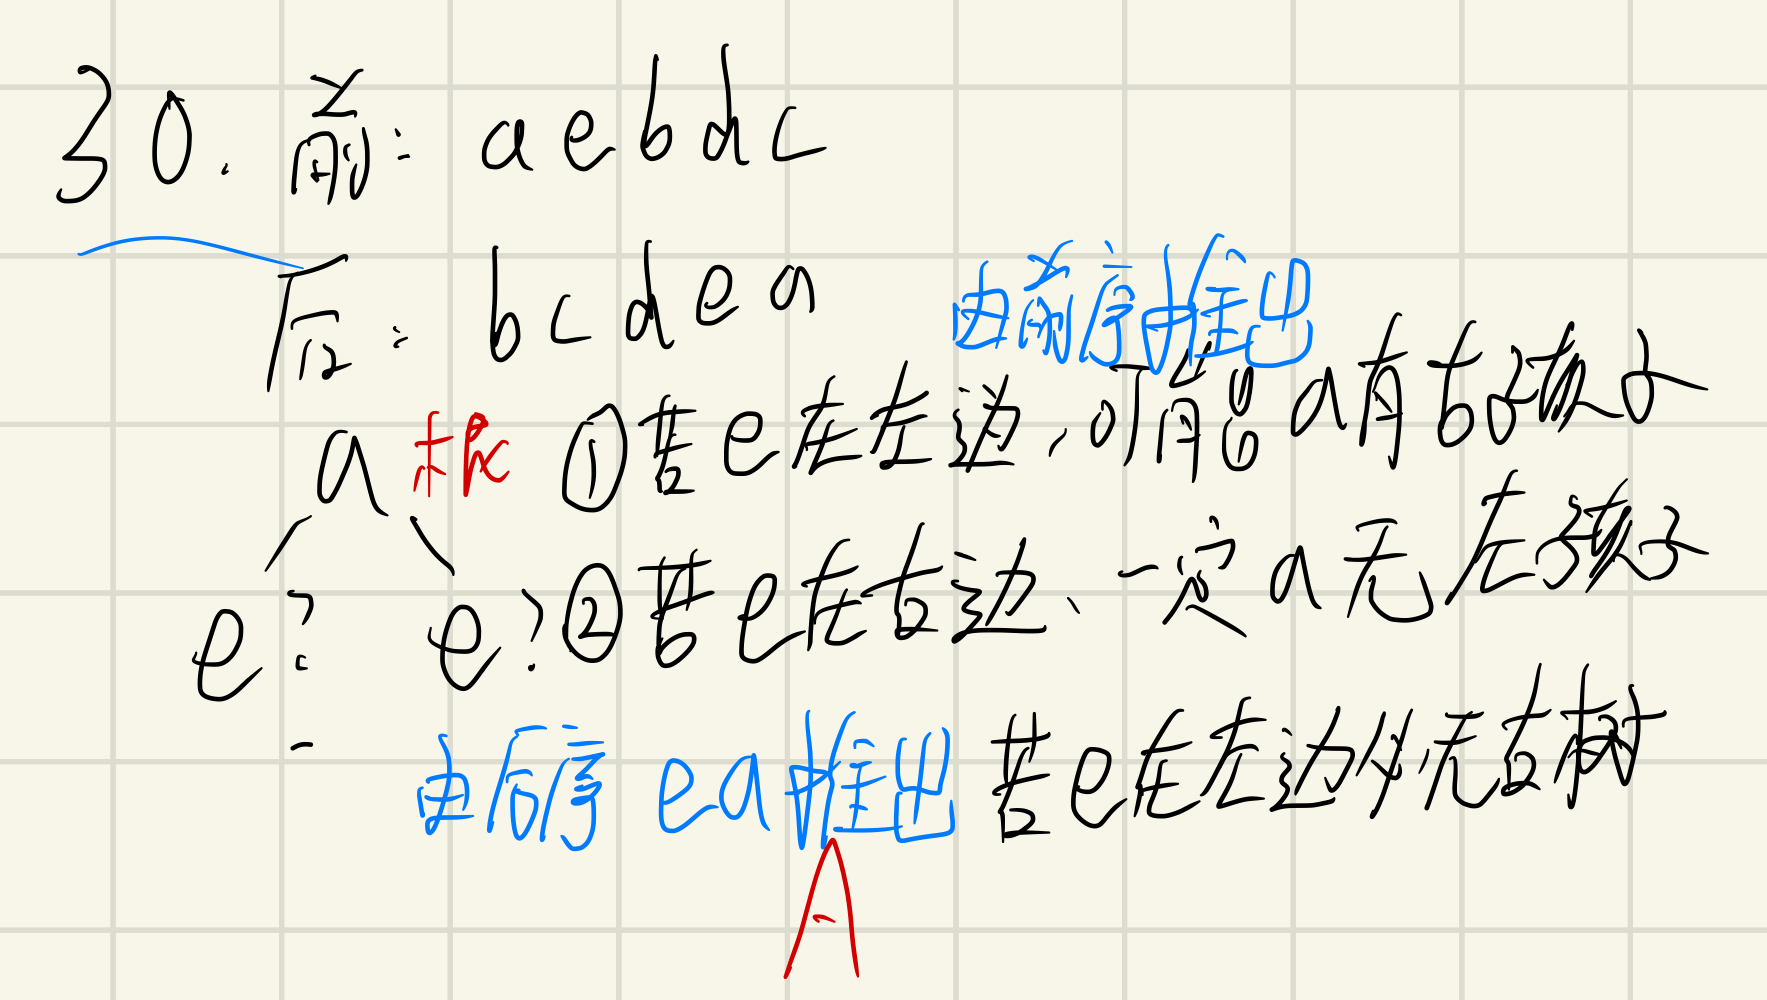 30. 前: aebdc
后: bcdea
由前序推出
a 根 ①若e在左边,可能a有右孩子
e? e? ②若e在右边、一定a无左孩子
由后序ea推出 若e在左边必无右树
A